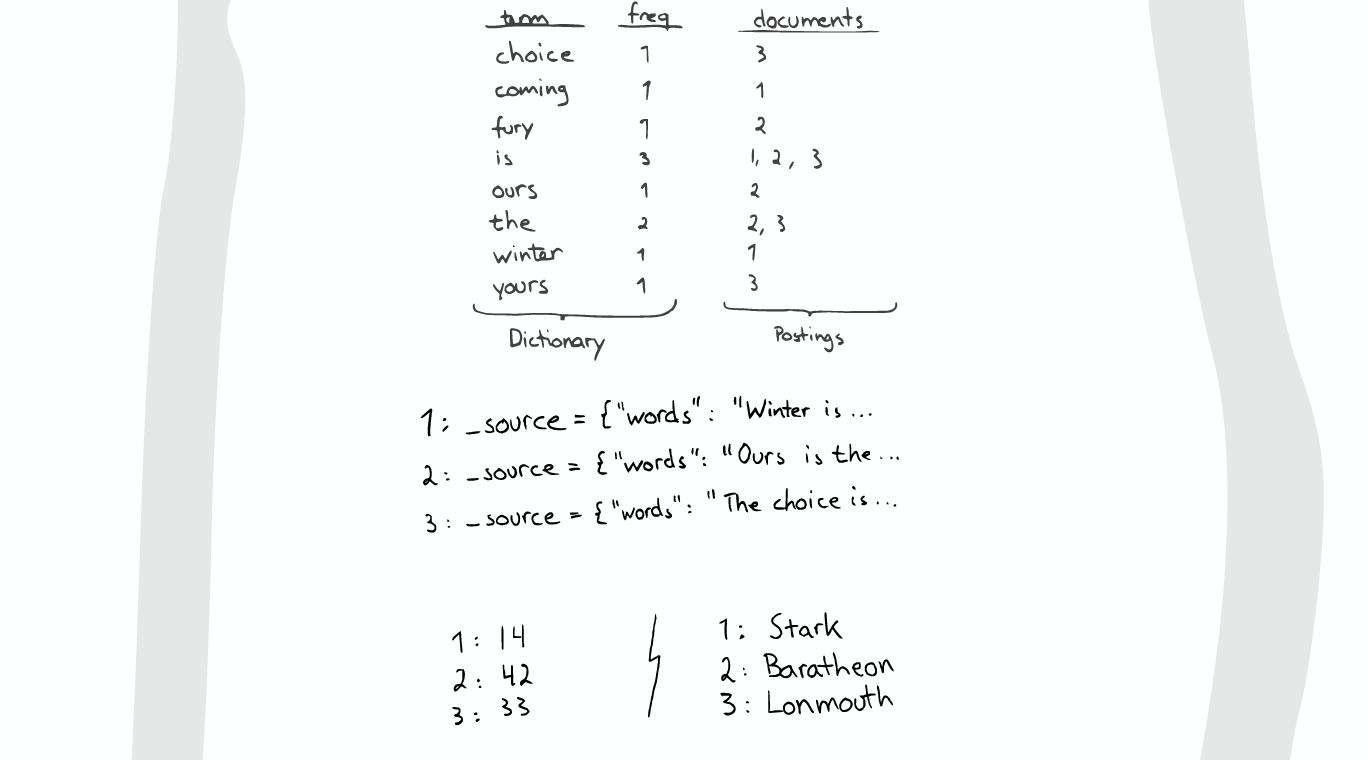 term freq documents
choice 1 3
coming 1 1
fury 1 2
is 3 1, 2, 3
ours 1 2
the 2 2, 3
winter 1 1
yours 1 3
Dictionary Postings
1: _source = {"words": "Winter is ...
2: _source = {"words": "Ours is the ...
3: _source = {"words": "The choice is ...
1: 14 1: Stark
2: 42 2: Baratheon
3: 33 3: Lonmouth